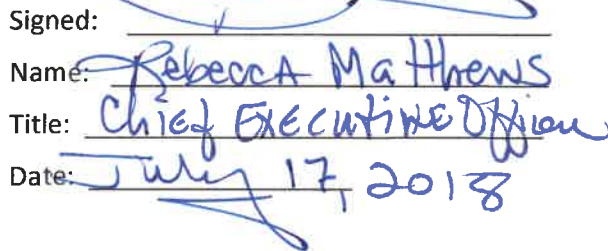 Signed:
Name: Rebecca Matthews
Title: Chief Executive Officer
Date: July 17, 2018